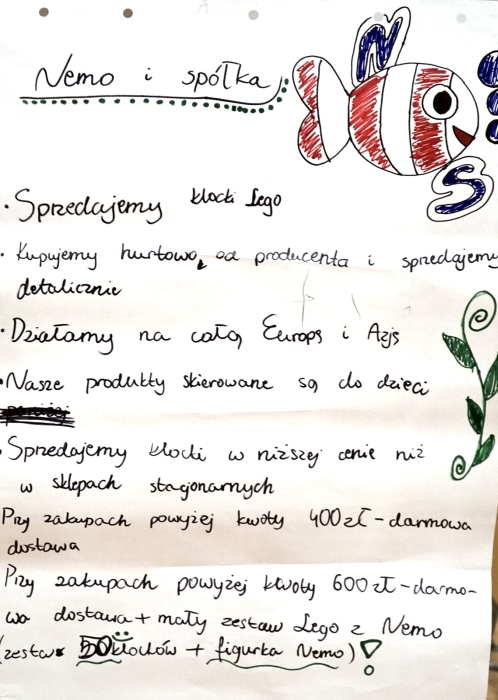 Nemo i spółka
N
S
• Sprzedajemy klocki Lego
• Kupujemy hurtowo, od producenta i sprzedajemy
detalicznie
• Działamy na całą Europę i Azję
• Nasze produkty skierowane są do dzieci
• Sprzedajemy klocki w niższej cenie niż
w sklepach stacjonarnych
Przy zakupach powyżej kwoty 400 zł - darmowa
dostawa
Przy zakupach powyżej kwoty 600 zł - darmo-
wa dostawa + mały zestaw Lego z Nemo
(zestaw 50 klocków + figurka Nemo)!